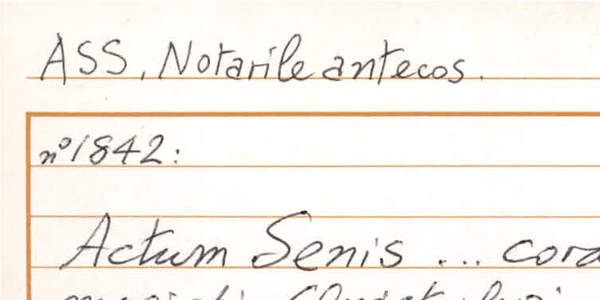 ASS, Notarile antecos.
n° 1842:
Actum Senis ... cora